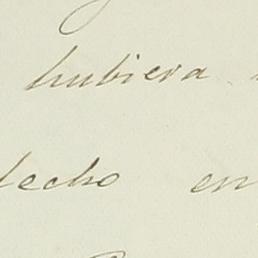 hubiera
lecho en